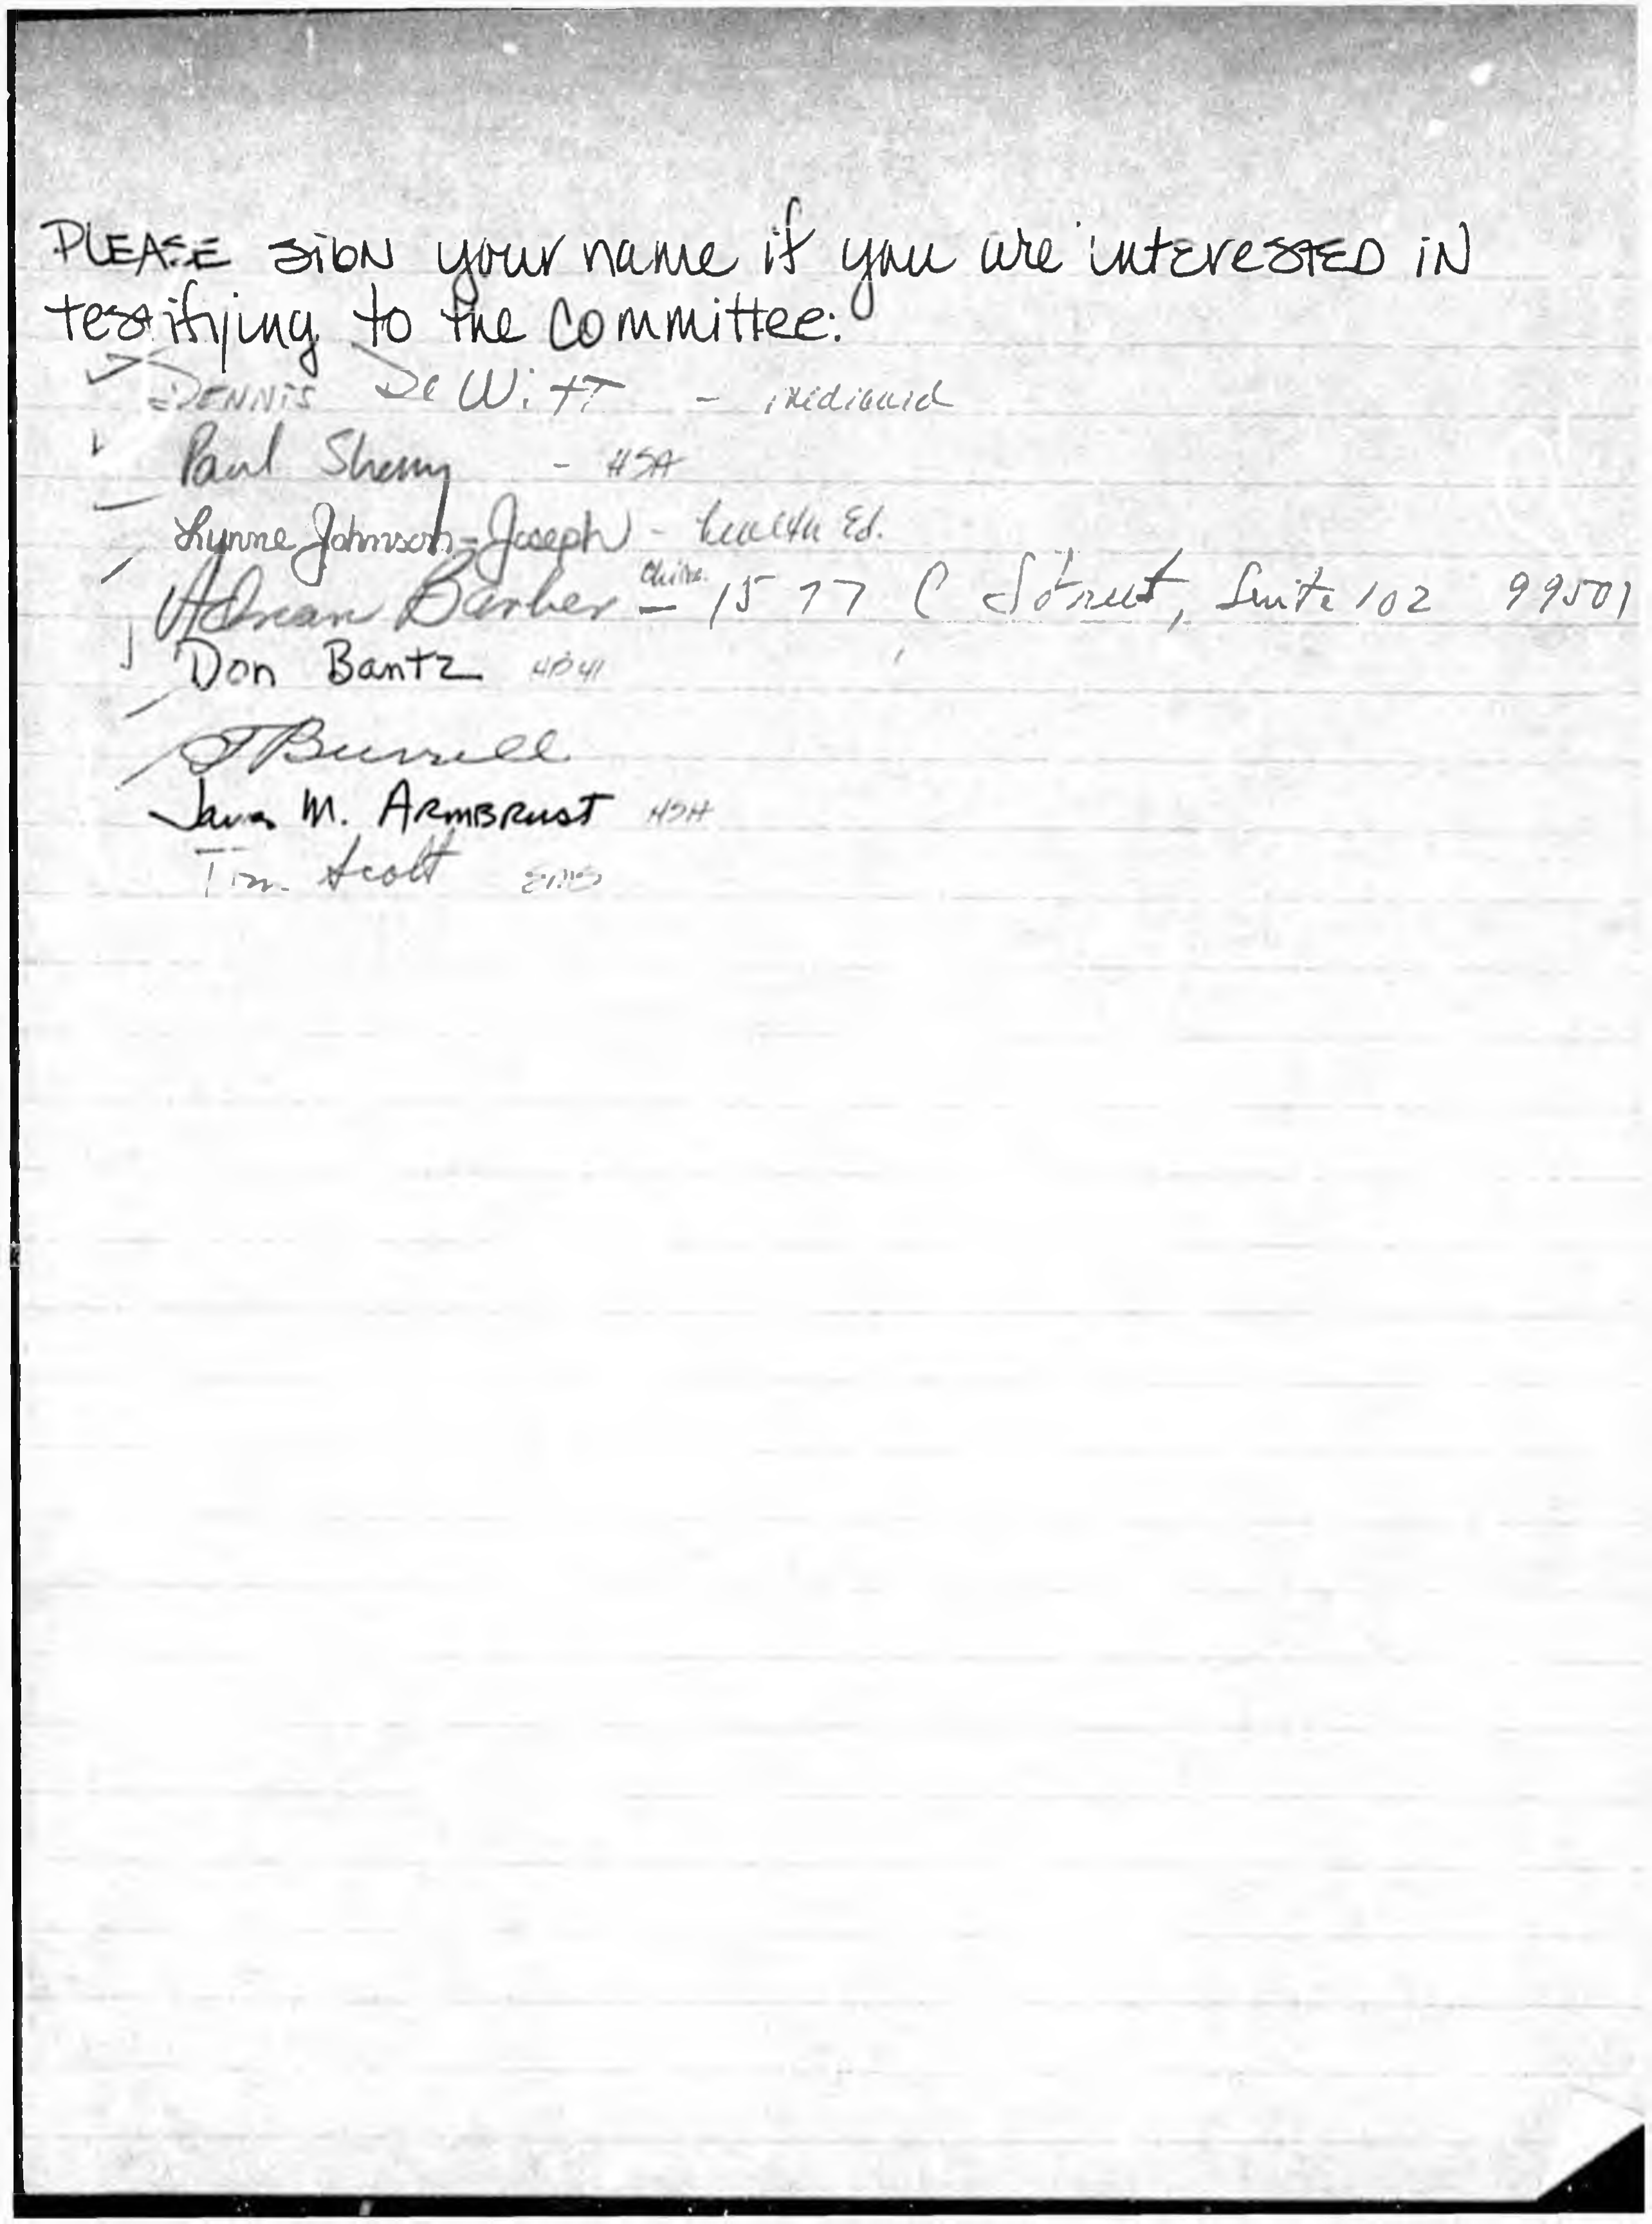 PLEASE sign your name if you are interESTED iN
testifying to the committee:
DENNiS DeWitt - medicaid
Paul Sherry - HSA
Lynne Johnson-Joseph - health Ed.
Adrian Barber - 1577 C Street, Suite 102 99501
Don Bantz
J Burrell
M. ARMBRUST HSA
Tim Scott EMS